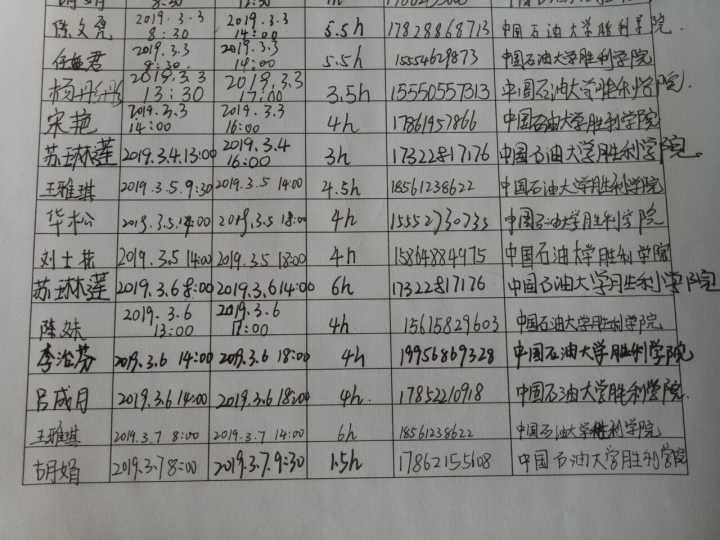 陈文亮 2019.3.3 8:30 2019.3.3 14:00 5.5h 17828868713 中国石油大学胜利学院.
任海君 2019.3.3 8:30 2019.3.3 14:00 5.5h 15554629873 中国石油大学胜利学院
杨丹丹 2019.3.3 13:30 2019.3.3 17:00 3.5h 15550557313 中国石油大学胜利学院.
宋艳 2019.3.3 14:00 2019.3.3 16:00 4h 17861957866 中国石油大学胜利学院
苏琳莲 2019.3.4.13:00 2019.3.4 16:00 3h 17322817176 中国石油大学胜利学院.
王雅琪 2019.3.5.9:30 2019.3.5 14:00 4.5h 18561238622 中国石油大学胜利学院
华松 2019.3.5.14:00 2019.3.5 18:00 4h 15552730735 中国石油大学胜利学院
刘士 2019.3.5 14:00 2019.3.5 18:00 4h 15864884975 中国石油大学胜利学院
苏琳莲 2019.3.6 8:00 2019.3.6 14:00 6h 17322817176 中国石油大学胜利学院
陈姝 2019.3.6 13:00 2019.3.6 17:00 4h 15615829603 中国石油大学胜利学院.
李治芬 2019.3.6 14:00 2019.3.6 18:00 4h 19956869328 中国石油大学胜利学院
吕成月 2019.3.6 14:00 2019.3.6 18:00 4h. 17852210918 中国石油大学胜利学院.
王雅琪 2019.3.7 8:00 2019.3.7 14:00 6h 18561238622 中国石油大学胜利学院
胡娟 2019.3.7 8:00 2019.3.7.9:30 1.5h 17862155608 中国石油大学胜利学院